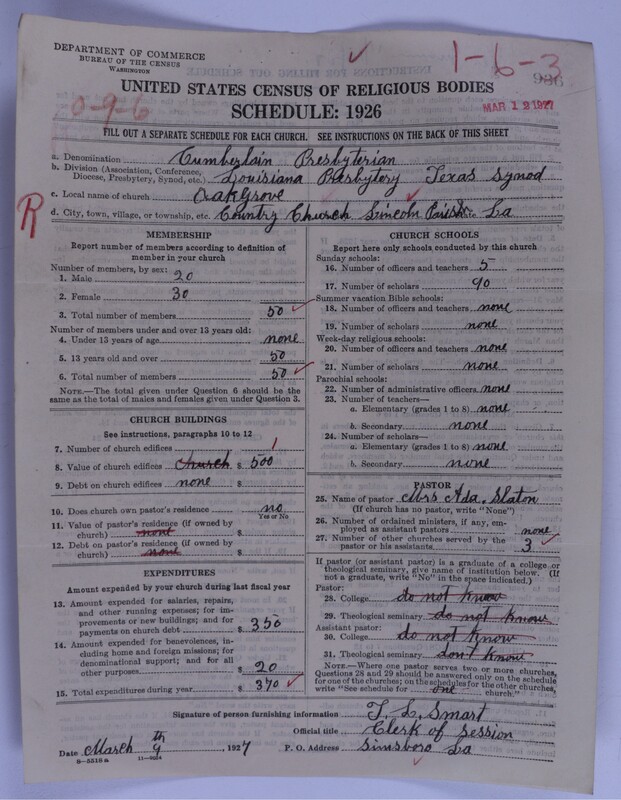 DEPARTMENT OF COMMERCE
BUREAU OF THE CENSUS
WASHINGTON
1-6-3
936
0-9-6
MAR 12 1927
UNITED STATES CENSUS OF RELIGIOUS BODIES
SCHEDULE: 1926
FILL OUT A SEPARATE SCHEDULE FOR EACH CHURCH. SEE INSTRUCTIONS ON THE BACK OF THIS SHEET
R
a. Denomination Cumberlain Presbyterian
b. Division (Association, Conference, Diocese, Presbytery, Synod, etc.) Louisiana Presbytery Texas Synod
c. Local name of church Oak Grove
d. City, town, village, or township, etc. Country Church Lincoln Parish La
MEMBERSHIP
Report number of members according to definition of
member in your church
Number of members, by sex:
1. Male 20
2. Female 30
3. Total number of members 50
Number of members under and over 13 years old:
4. Under 13 years of age none
5. 13 years old and over 50
6. Total number of members 50
NOTE.—The total given under Question 6 should be
same as the total of males and females given under Question 3.
CHURCH BUILDINGS
See instructions, paragraphs 10 to 12
7. Number of church edifices 1
8. Value of church edifices church $ 500
9. Debt on church edifices none $
10. Does church own pastor's residence no
Yes or No
11. Value of pastor's residence (if owned by
church) none $
12. Debt on pastor's residence (if owned by
church) none $
EXPENDITURES
Amount expended by your church during last fiscal year
13. Amount expended for salaries, repairs,
and other running expenses; for im-
provements or new buildings; and for
payments on church debt $ 350
14. Amount expended for benevolences, in-
cluding home and foreign missions; for
denominational support; and for all
other purposes $ 20
15. Total expenditures during year $ 370
CHURCH SCHOOLS
Report here only schools conducted by this church
Sunday schools:
16. Number of officers and teachers 5
17. Number of scholars 90
Summer vacation Bible schools:
18. Number of officers and teachers none
19. Number of scholars none
Week-day religious schools:
20. Number of officers and teachers none
21. Number of scholars none
Parochial schools:
22. Number of administrative officers none
23. Number of teachers—
a. Elementary (grades 1 to 8) none
b. Secondary none
24. Number of scholars—
a. Elementary (grades 1 to 8) none
b. Secondary none
PASTOR
25. Name of pastor Mrs Ada. Slaton
(If church has no pastor, write "None")
26. Number of ordained ministers, if any, em-
ployed as assistant pastors none
27. Number of other churches served by the
pastor or his assistants 3
If pastor (or assistant pastor) is a graduate of a college or
theological seminary, give name of institution below. (If
not a graduate, write "No" in the space indicated.)
Pastor:
28. College do not know
29. Theological seminary do not know
Assistant pastor:
30. College do not know
31. Theological seminary don't know
NOTE.—Where one pastor serves two or more churches,
Questions 28 and 29 should be answered only on the schedule
for one of the churches; on the schedules for the other churches,
write "See schedule for one church."
Signature of person furnishing information T. L. Smart
Official title Clerk of Session
Date March 9th, 1927 P. O. Address Simsboro La
8—5518 a 11—9224